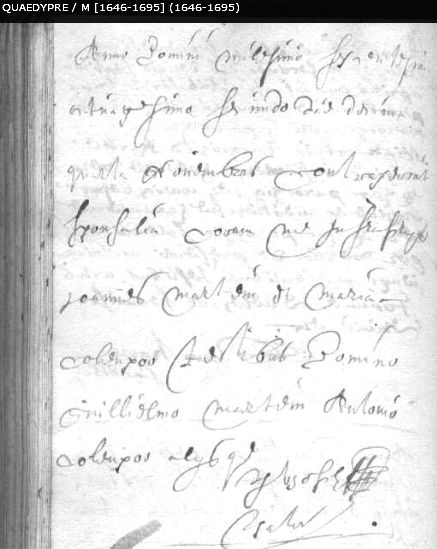 QUAEDYPRE / M [1646-1695] (1646-1695)
Anno Domini milesimo sexentesimo
octuagesimo secundo die decima
quarta Novembris contraxerunt
sponsalia coram me infrascripto
Joannes Martein et Maria
Colenpos testibus Domino
Guilielmo Martein Antonio
Colenpos alysque